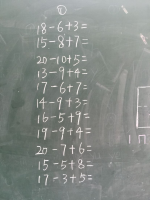 ①
18-6+3=
15-8+7=
20-10+5=
13-9+4=
17-6+7=
14-9+3=
16-5+9=
19-9+4=
20-7+6=
15-5+8=
17-3+5=